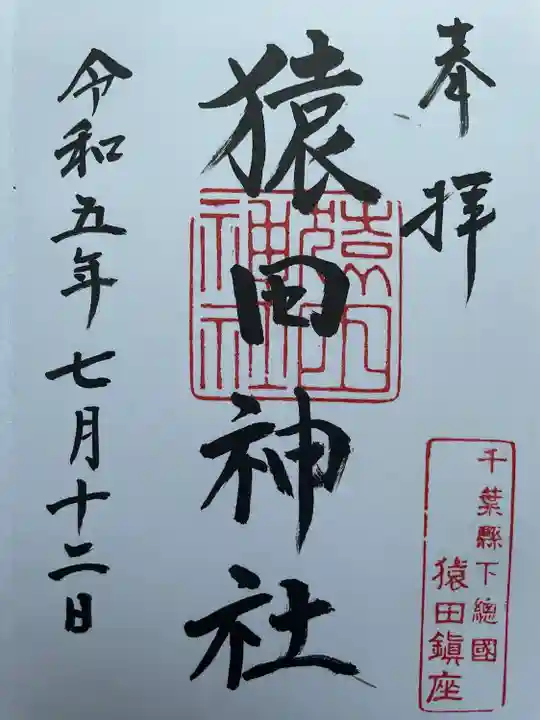 奉拝
千葉縣下總國
猿田鎮座
猿田神社
令和五年七月十二日